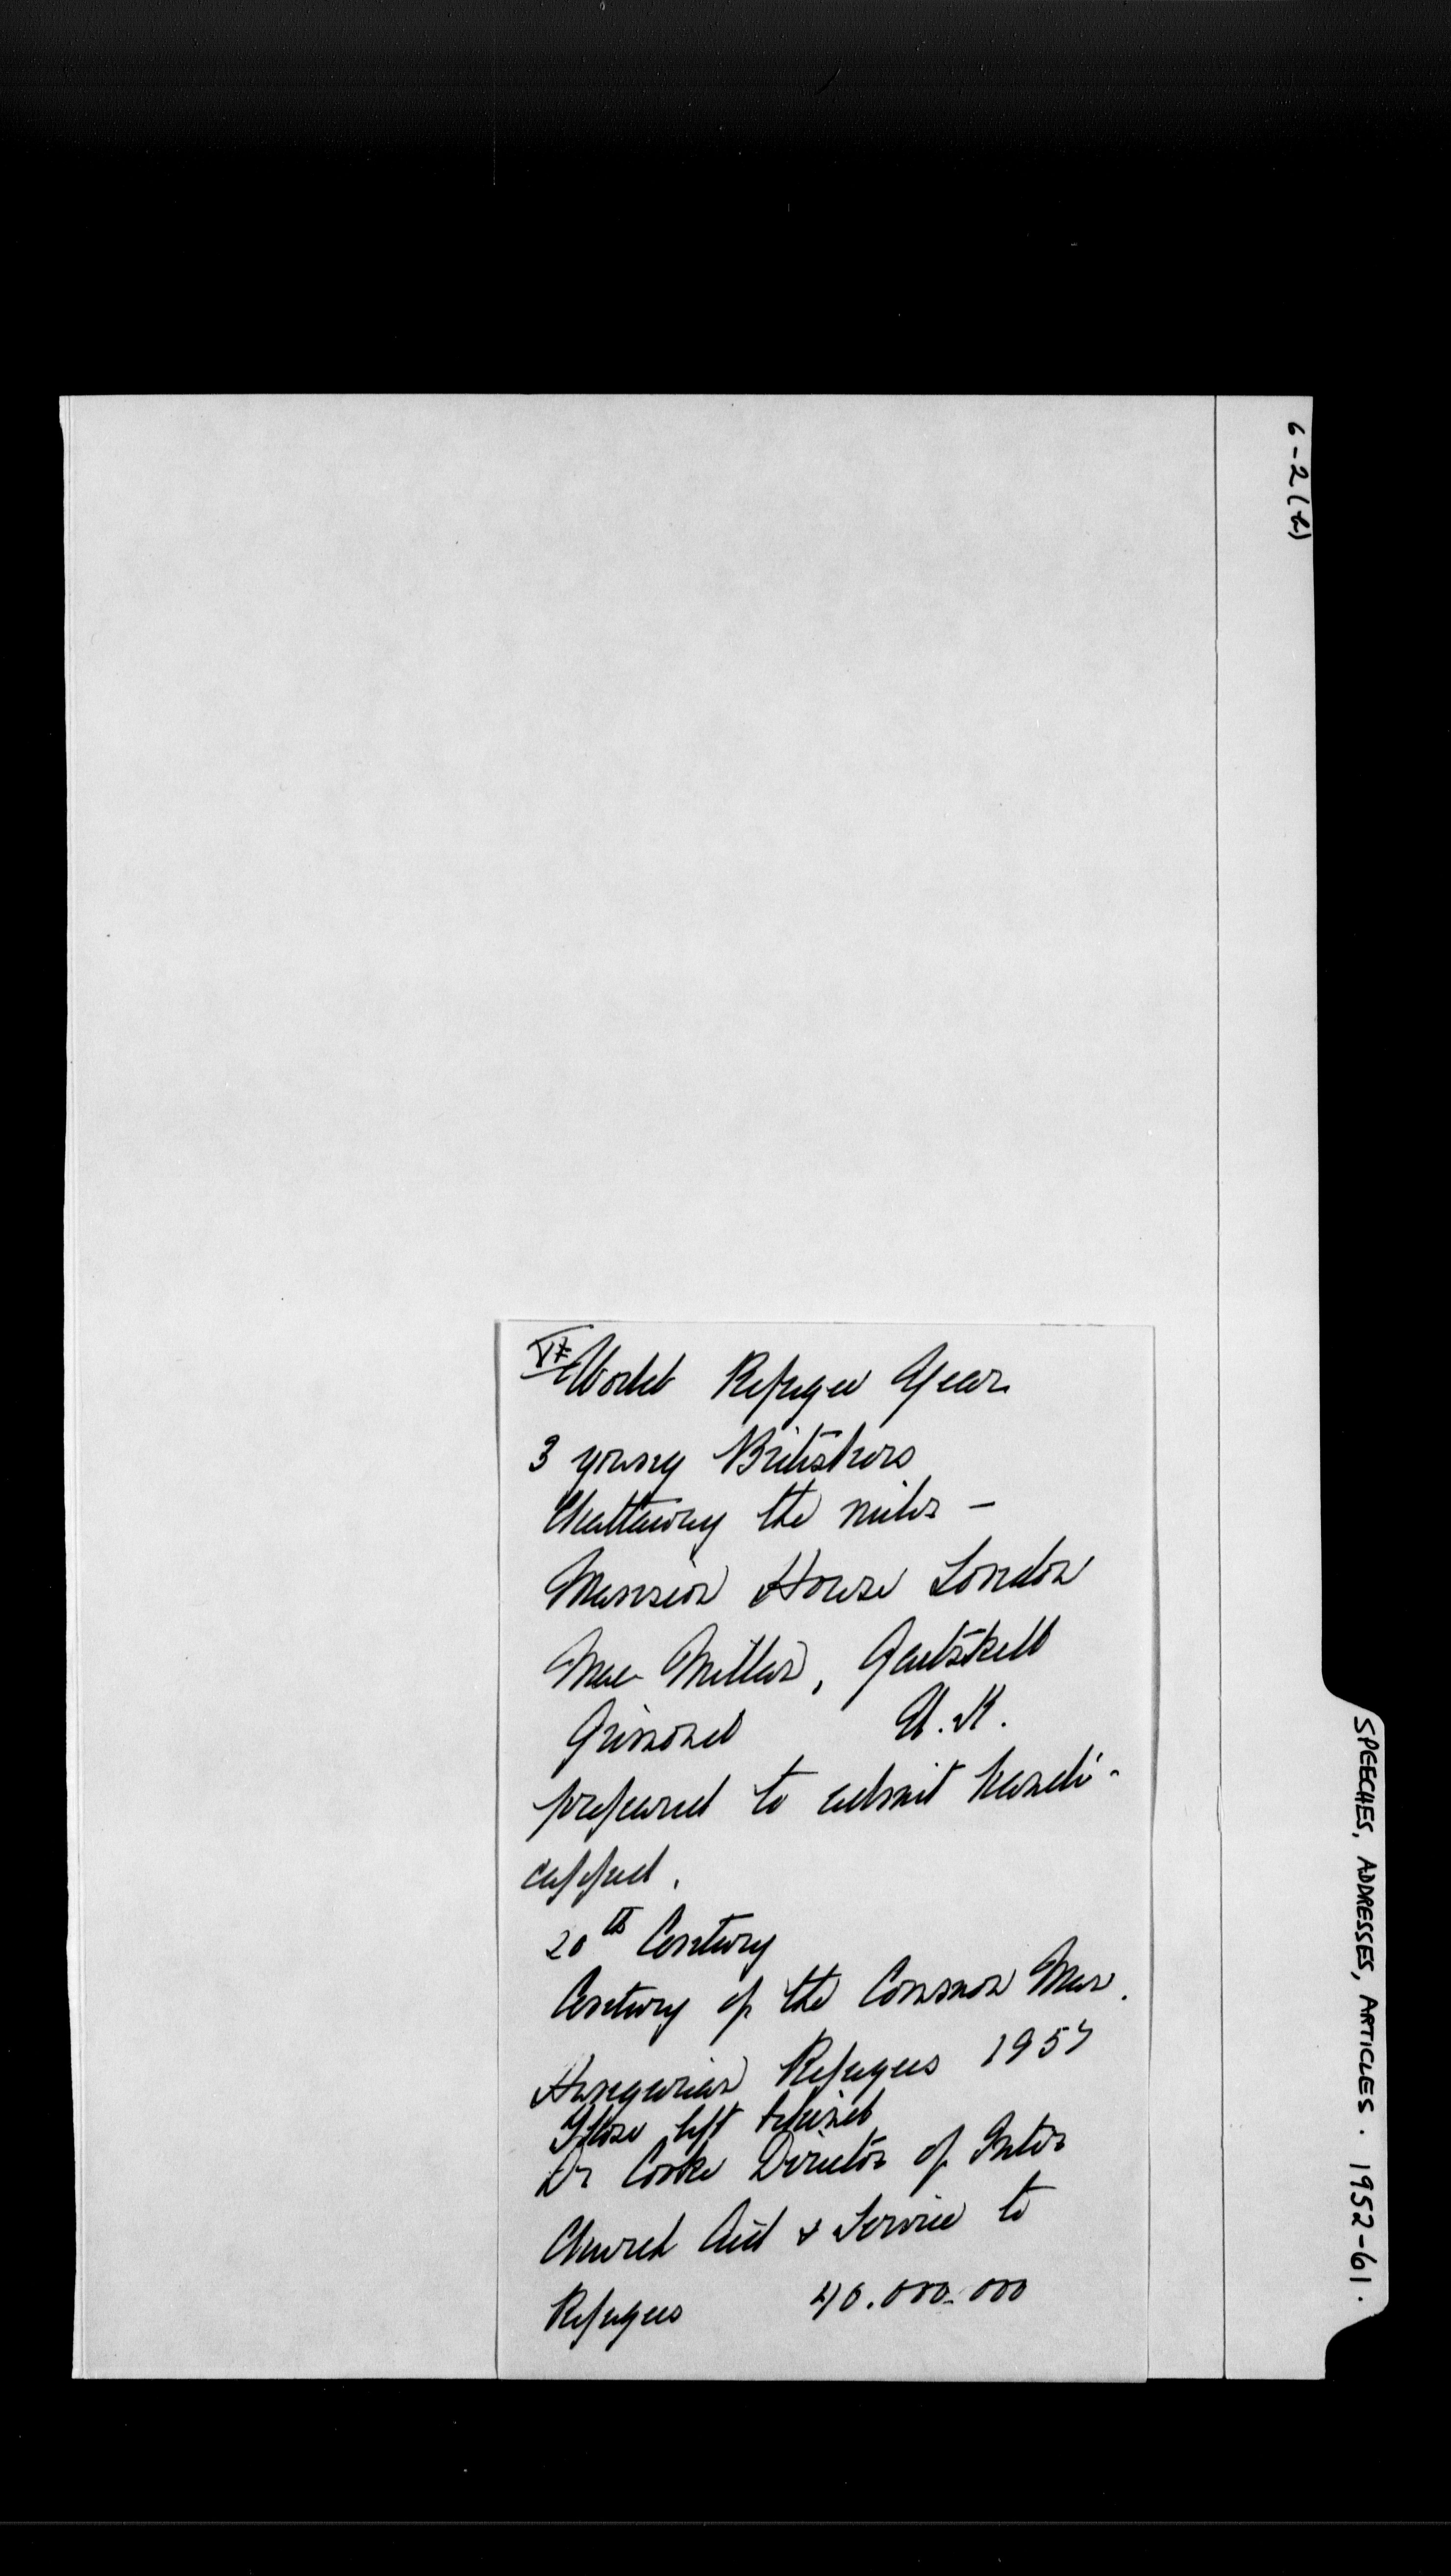 6-2(h)
SPEECHES, ADDRESSES, ARTICLES. 1952-61.
World Refugee Year
3 young Britishers
Chattaway the miler -
Mansion House London
Mac Millan, Gaitskell
Grimond U.K.
prepared to admit handi-
capped.
20th Century
Century of the Common Man.
Hungarian Refugees 1957
Those left behind
Dr Cooke Director of Inter
Church Aid & Service to
Refugees 40.000.000